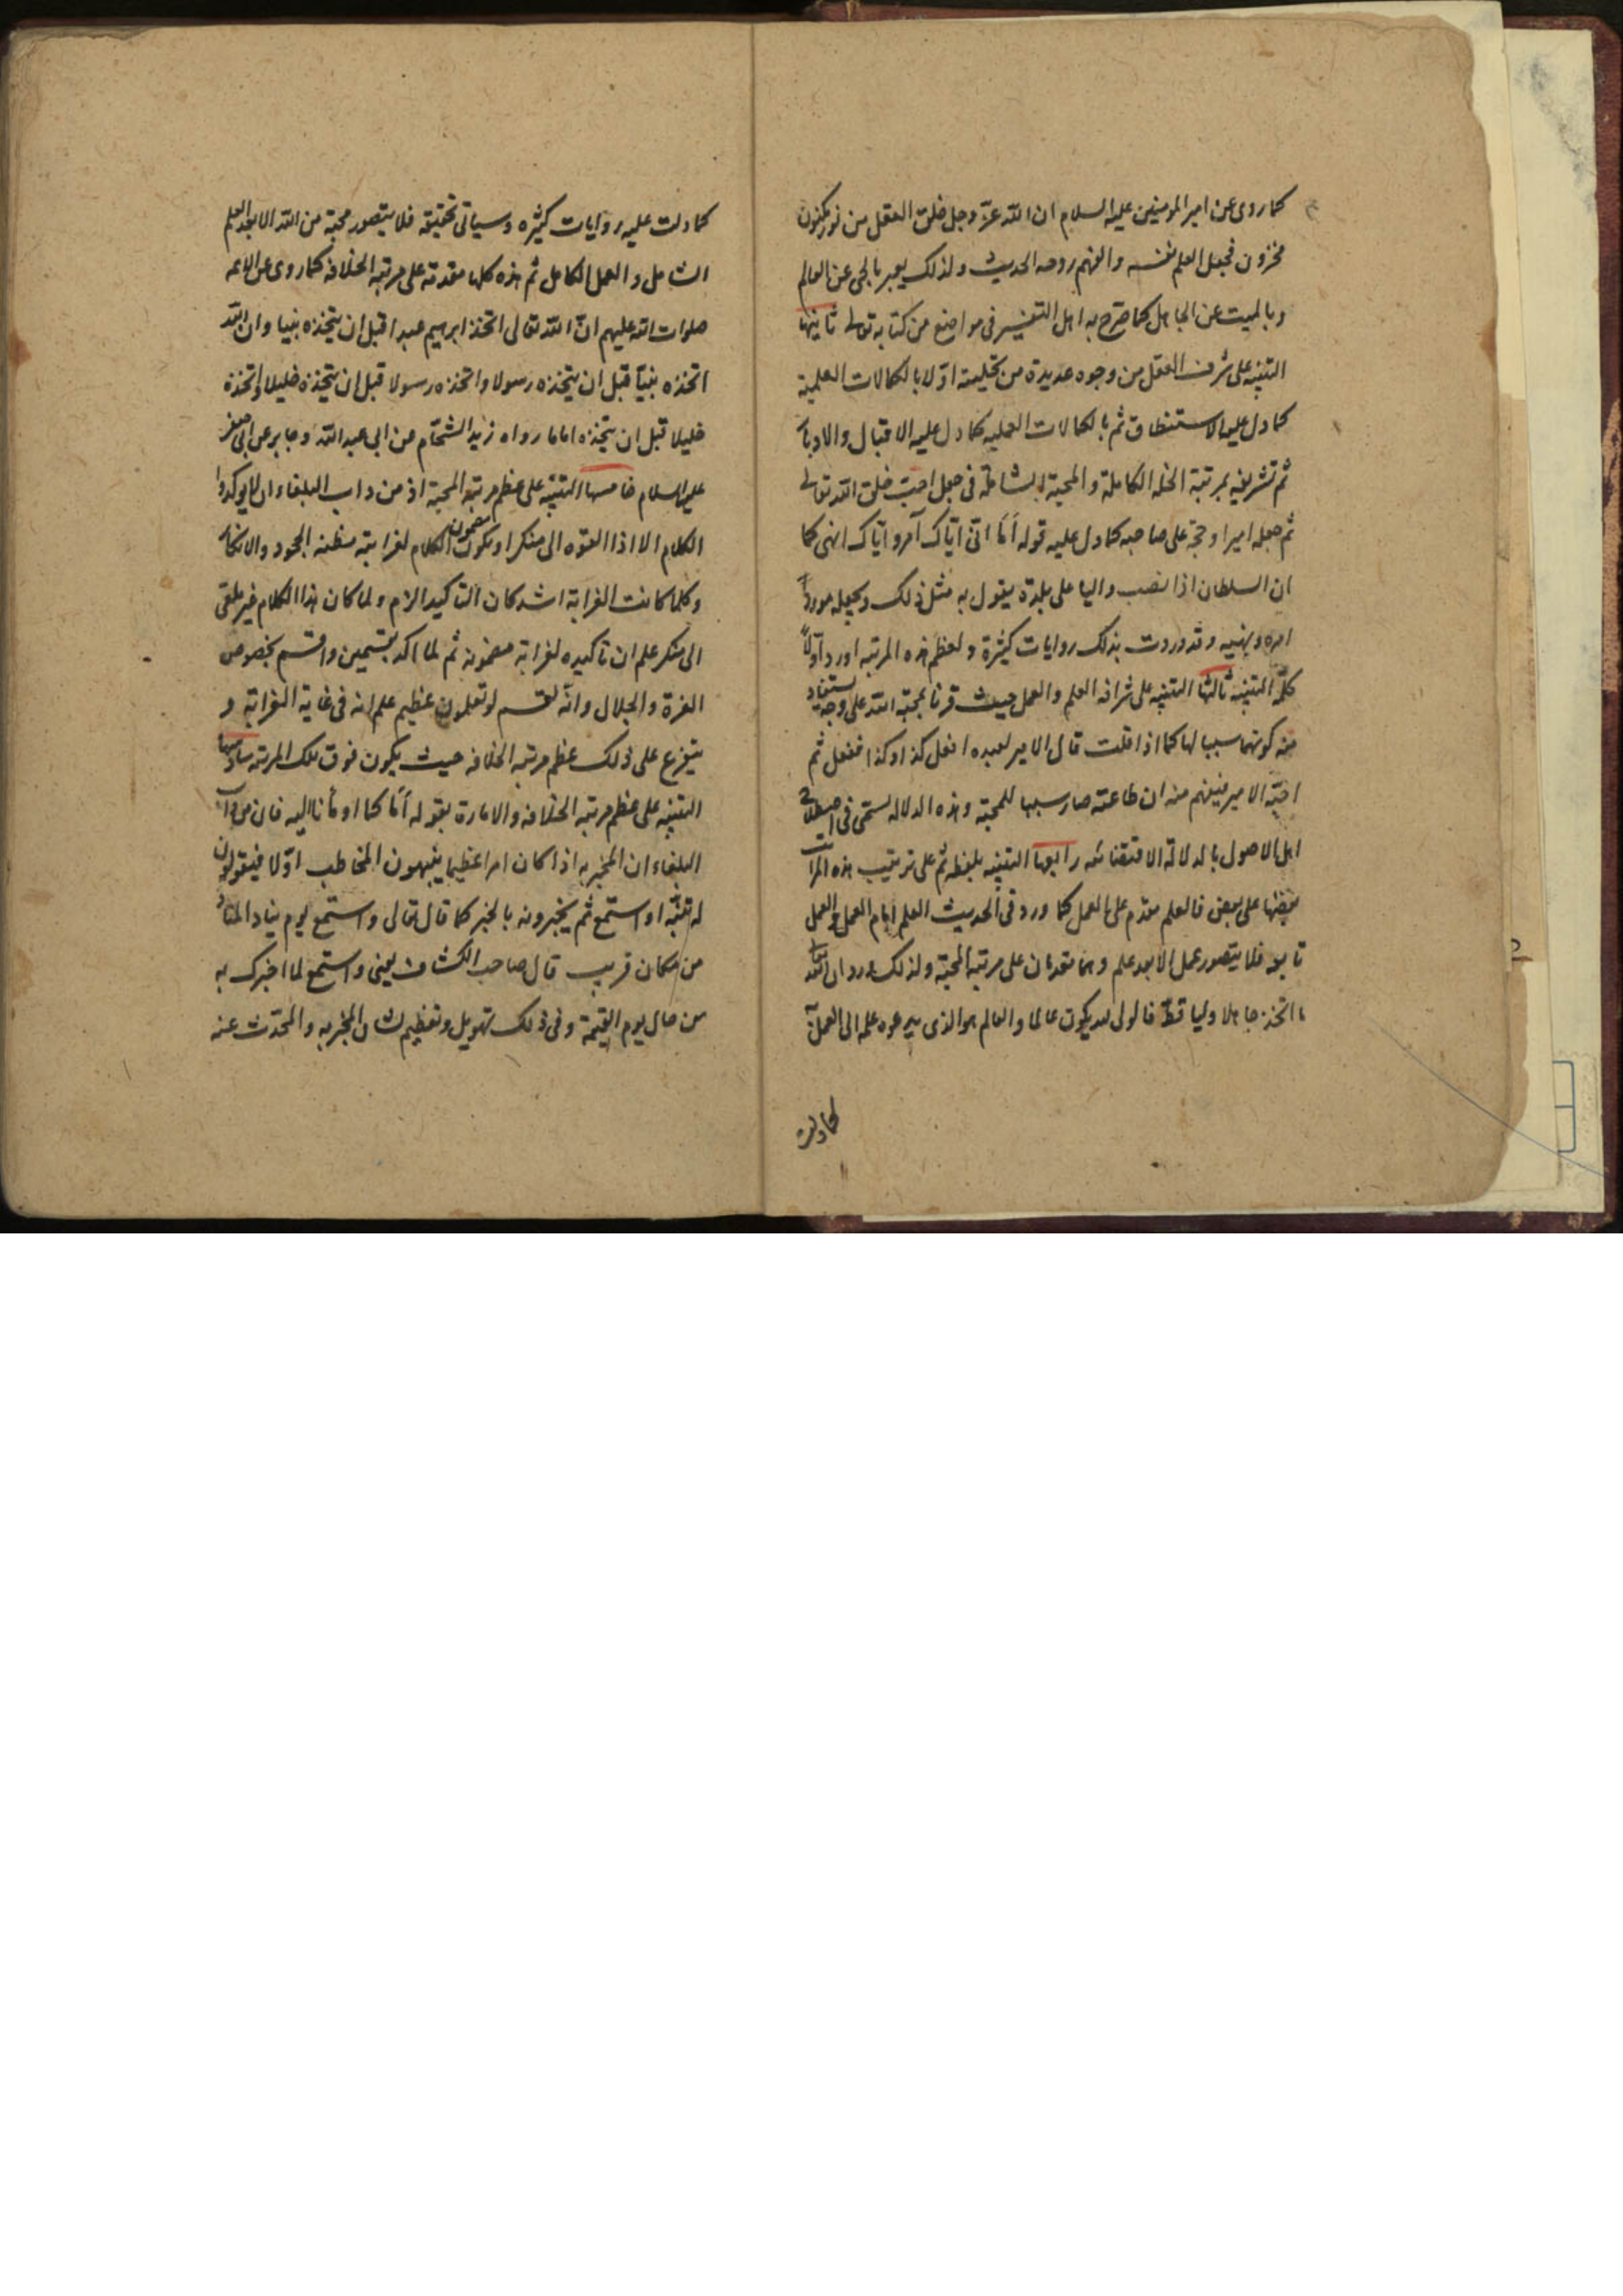 كما روى عن امير المومنين عليه السلام ان الله عزّ وجل خلق العقل من نور مكنون
مخزون فجعل العلم نفسه والفهم روحه الحديث ولذلك يعبر بالحى عن العالم
وبالميت عن الجاهل كما صرّح به اهل التفسير فى مواضع من كتابه تعالى ثانيها
التنبيه على شرف العقل من وجوه عديدة من تحليته اوّلا بالكمالات العلمية
كما دل عليه الاستنطاق ثم بالكمالات العمليه كما دل عليه الاقبال والادبار
ثم تشريفه بمرتبة الخلة الكاملة والمحبة الشاملة فى جعل احبّ خلق الله تعالى
ثم جعله اميرا وحجة على صاحبه كما دل عليه قوله أمَا انى ايّاك آمر واياك انهى كما
ان السلطان اذا نصب واليا على بلدة يقول به مثل ذلك ويجعله مورد
امره ونهيه وقد وردت بذلك روايات كثيرة ولعظم هذه المرتبه اورد اوّلاً
كلمة التنبيه ثالثها التنبيه على شرافه العلم والعمل حيث قرنا بمحبة الله على وجه يستفاد
منه كونهما سببا لها كما اذا قلت قال الامير لعبده افعل كذا وكذا ففعل ثم
احبّه الامير فيفهم منه ان طاعته صار سببا للمحبة وهذه الدلاله تسمى فى اصطلاح
اهل الاصول بالدلالة الاقتضائيه رابعها التنبيه بلفظه ثم على ترتيب هذه المراتب
بعضها على بعض فالعلم مقدم على العمل كما ورد فى الحديث العلم امام العمل والعمل
تابعه فلا يتصور عمل الا بعد علم وهما مقدمان على مرتبة المحبة ولذلك ورد ان الله تعالى
ما اتخذ جاهلا وليا قط فالولى لابد يكون عالما والعالم هو الذى يدعوه علمه الى العمل
كما دلت
كما دلت عليه روايات كثيره وسياتى تحقيقه فلا يتصور محبة من الله الا بعد العلم
الشامل والعمل الكامل ثم هذه كلها مقدمة على مرتبة الخلافة كما روى عن الائمه
صلوات الله عليهم انّ الله تعالى اتخذ ابرهيم عبدا قبل ان يتخذه نبيا وان الله
اتخذه نبيّا قبل ان يتخذه رسولا واتخذه رسولا قبل ان يتخذه خليلا واتخذه
خليلا قبل ان يتخذه اماما رواه زيد الشحّام عن ابى عبد الله وجابر عن ابى جعفر
عليه السلام خامسها التنبيه على عظم مرتبة المحبة اذ من داب البلغاء ان لا يوكدوا
الكلام الا اذا القوه الى منكر او يكون مضمون الكلام لغرابته مظنه الجحود والانكار
وكلما كانت الغرابة اشد كان التاكيد الزم ولما كان هذا الكلام غير ملقى
الى منكر علم ان تاكيده لغرابة مضمونه ثم لما اكده بقسمين واقسم بخصوص
العزة والجلال وانّه لقسم لو تعلمون عظيم علم انه فى غاية الغرابة و
يتفرع على ذلك عظم مرتبة الخلافه حيث يكون فوق تلك المرتبه سادسها
التنبيه على عظم مرتبة الخلافه والامارة بقوله أمَا كما اومأنا اليه فان من داب
البلغاء ان المخبر به اذا كان امرا عظيما ينبهون المخاطب اوّلا فيقولون
له تنبّه او استمع ثم يخبرونه بالخبر كما قال تعالى واستمع يوم يناد المناد
من مكان قريب قال صاحب الكشاف يعنى واستمع لما اخبرك به
من حال يوم القيمة وفى ذلك تهويل وتعظيم لشان المخبر به والمحدّث عنه